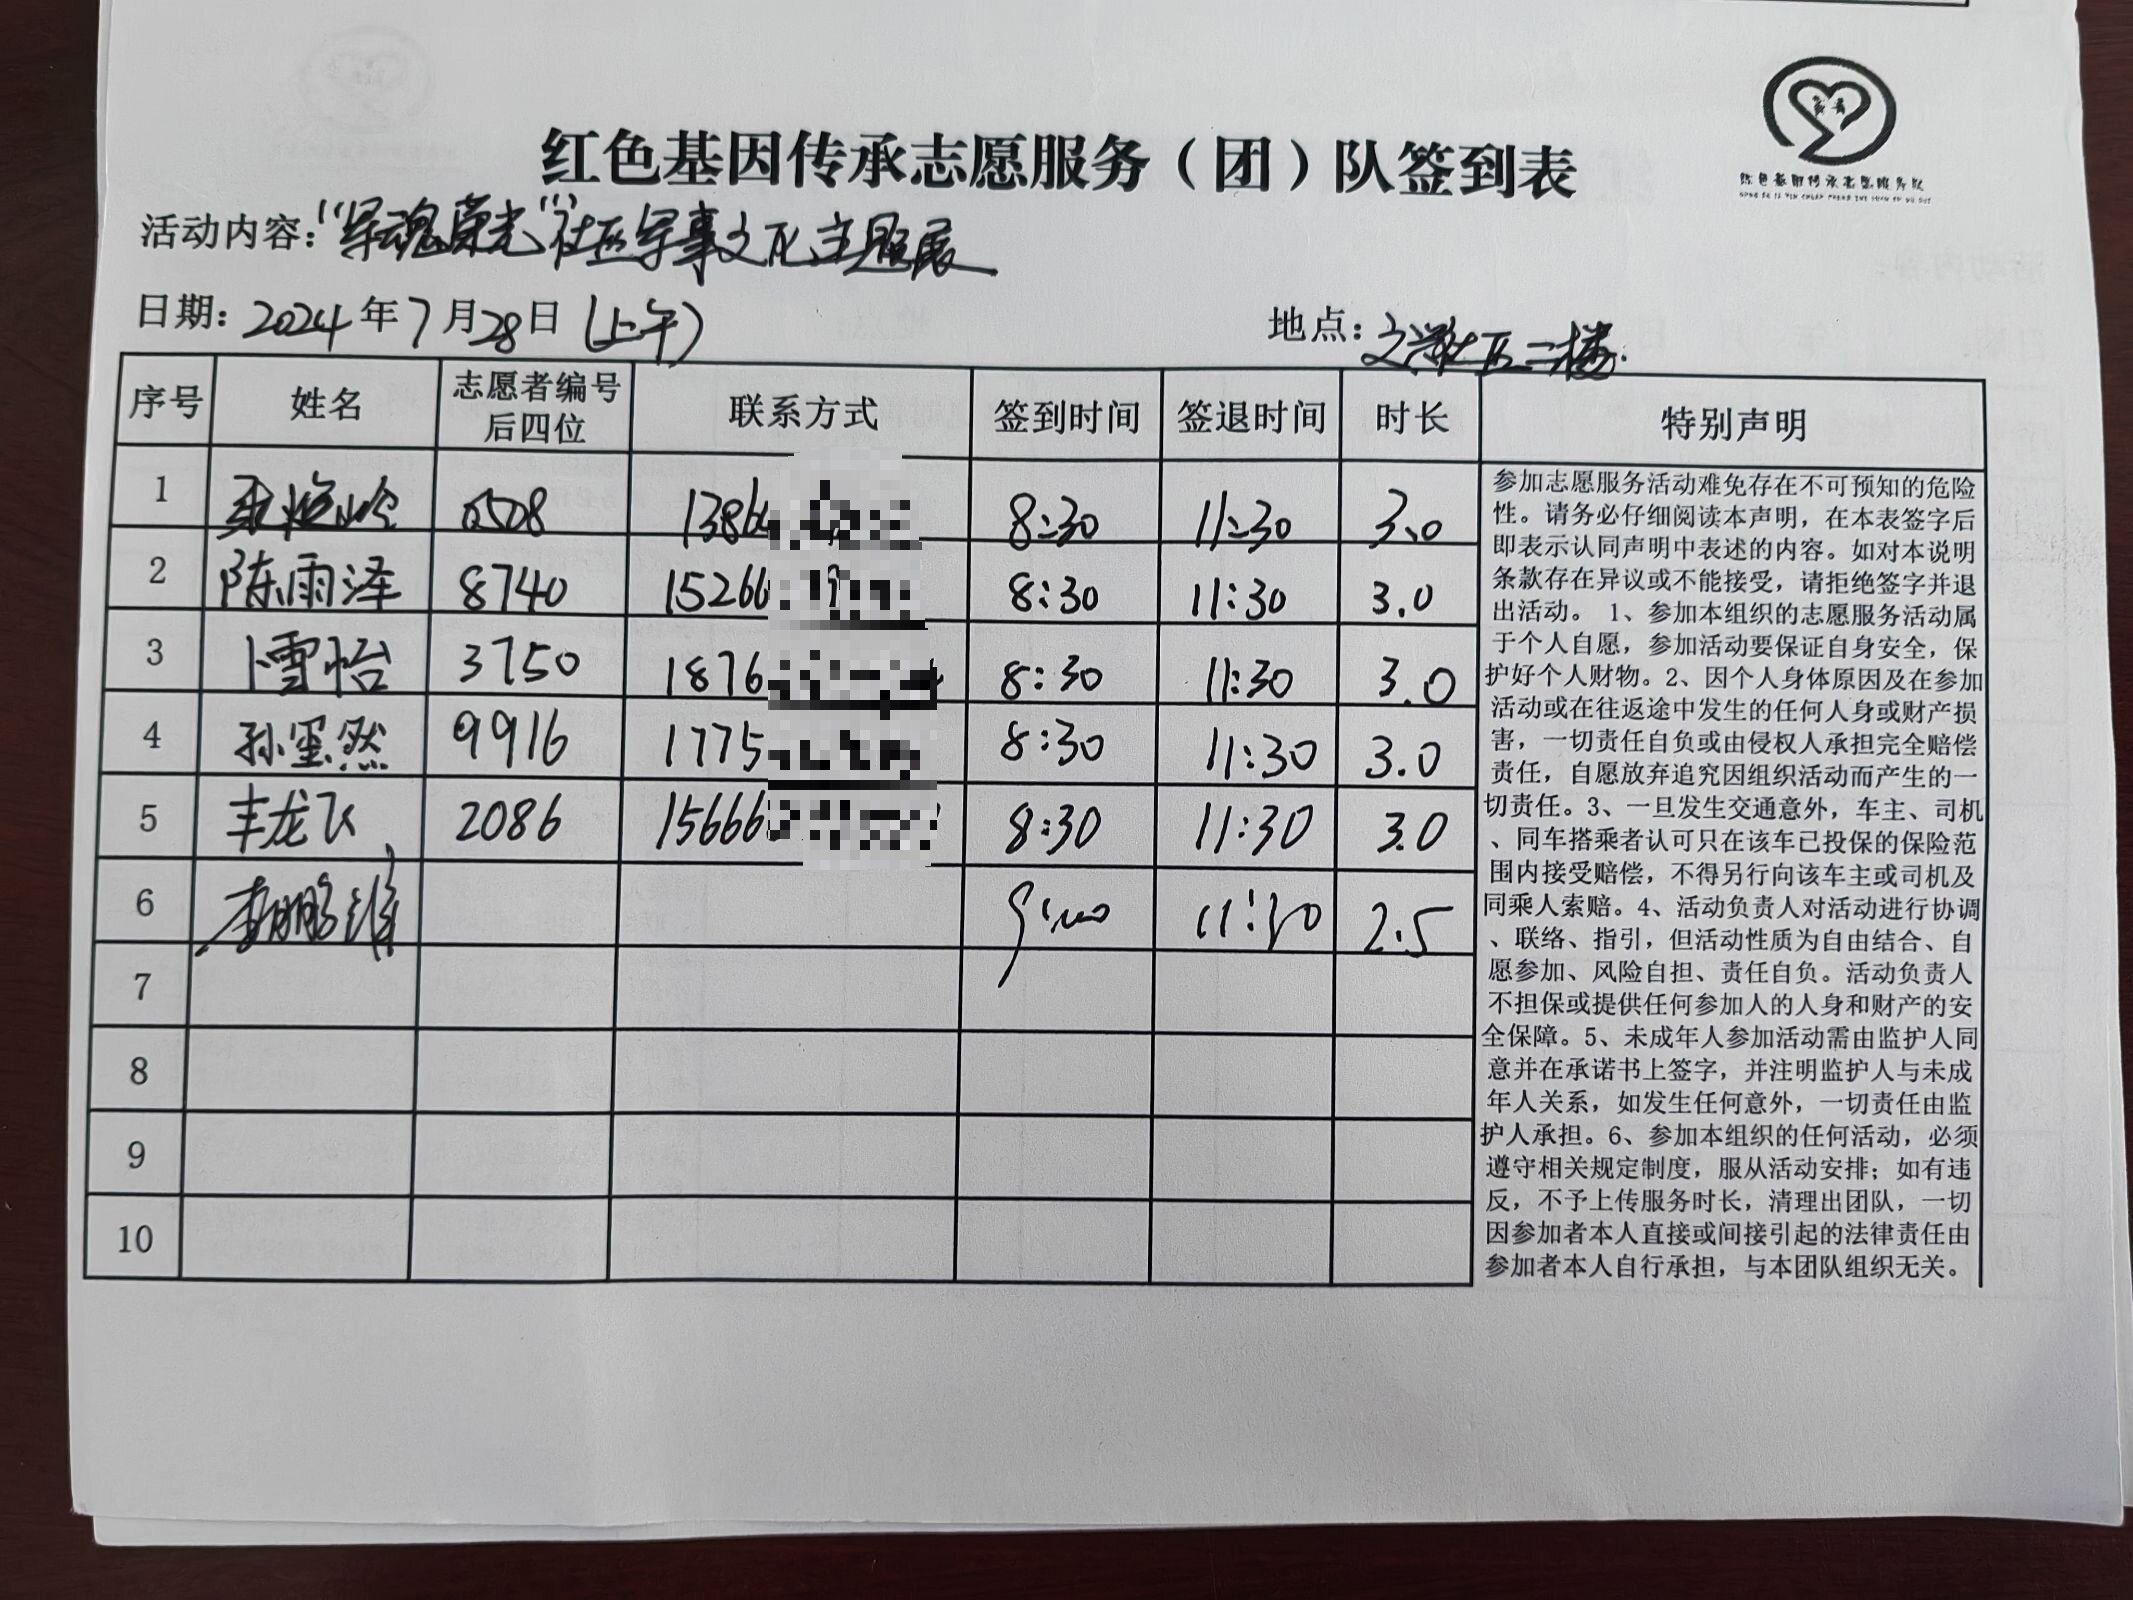 红色基因传承志愿服务（团）队签到表
红色基因传承志愿服务队
活动内容："军魂荣光"社区军事文化主题展
日期：2024年7月28日（上午） 地点：文 社区二楼
序号 姓名 志愿者编号后四位 联系方式 签到时间 签退时间 时长 特别声明
1 0508 1386 8:30 11:30 3.0
2 陈雨泽 8740 15266 8:30 11:30 3.0
3 卜雪怡 3750 1876 8:30 11:30 3.0
4 孙 然 9916 1775 8:30 11:30 3.0
5 丰龙飞 2086 15666 8:30 11:30 3.0
6 李鹏 9:00 11:30 2.5
7
8
9
10
参加志愿服务活动难免存在不可预知的危险
性。请务必仔细阅读本声明，在本表签字后
即表示认同声明中表述的内容。如对本说明
条款存在异议或不能接受，请拒绝签字并退
出活动。 1、参加本组织的志愿服务活动属
于个人自愿，参加活动要保证自身安全，保
护好个人财物。2、因个人身体原因及在参加
活动或在往返途中发生的任何人身或财产损
害，一切责任自负或由侵权人承担完全赔偿
责任，自愿放弃追究因组织活动而产生的一
切责任。3、一旦发生交通意外，车主、司机
、同车搭乘者认可只在该车已投保的保险范
围内接受赔偿，不得另行向该车主或司机及
同乘人索赔。4、活动负责人对活动进行协调
、联络、指引，但活动性质为自由结合、自
愿参加、风险自担、责任自负。活动负责人
不担保或提供任何参加人的人身和财产的安
全保障。5、未成年人参加活动需由监护人同
意并在承诺书上签字，并注明监护人与未成
年人关系，如发生任何意外，一切责任由监
护人承担。6、参加本组织的任何活动，必须
遵守相关规定制度，服从活动安排；如有违
反，不予上传服务时长，清理出团队，一切
因参加者本人直接或间接引起的法律责任由
参加者本人自行承担，与本团队组织无关。